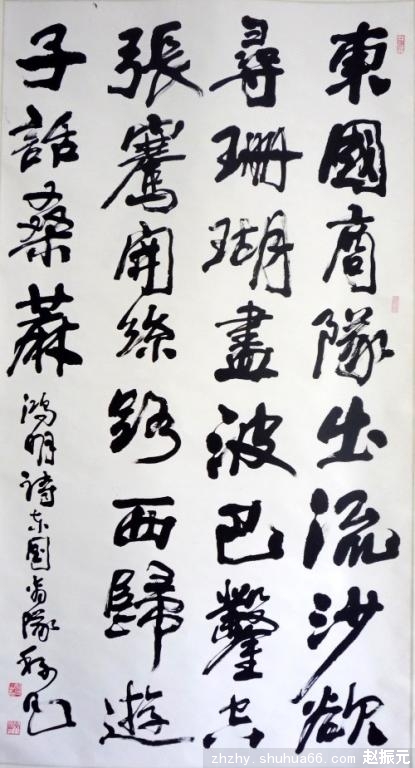 東國商隊出流沙欲
尋珊瑚盡波巴鑿空
張騫開絲路西歸遊
子話桑蔴
鴻明诗东国商隊
zhzhy.shuhua66.com 赵振元